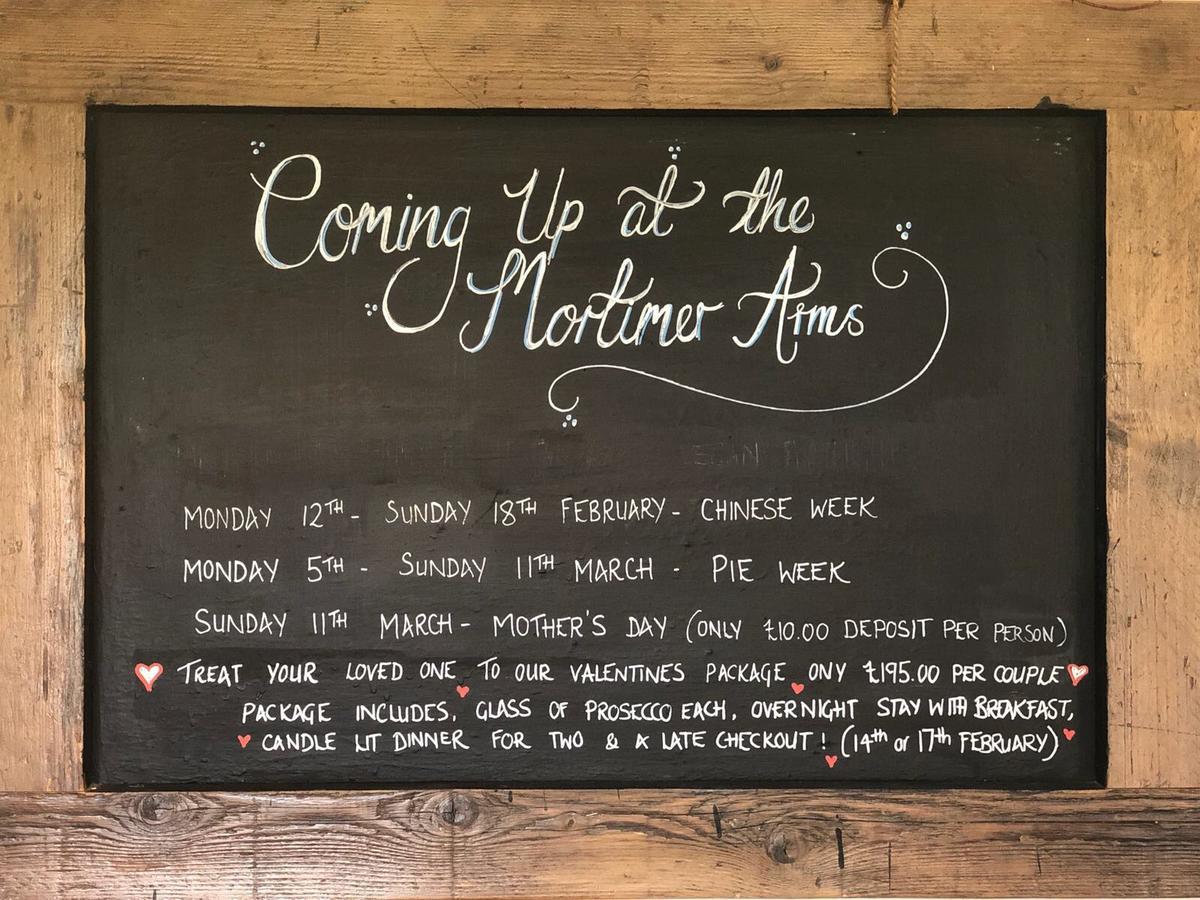 Coming Up at the
Mortimer Arms
MONDAY 12TH - SUNDAY 18TH FEBRUARY - CHINESE WEEK
MONDAY 5TH - SUNDAY 11TH MARCH - PIE WEEK
SUNDAY 11TH MARCH - MOTHER'S DAY (ONLY £10.00 DEPOSIT PER PERSON)
TREAT YOUR LOVED ONE TO OUR VALENTINES PACKAGE ONY £195.00 PER COUPLE
PACKAGE INCLUDES, GLASS OF PROSECCO EACH, OVERNIGHT STAY WITH BREAKFAST,
CANDLE LIT DINNER FOR TWO & A LATE CHECKOUT! (14th or 17th FEBRUARY)